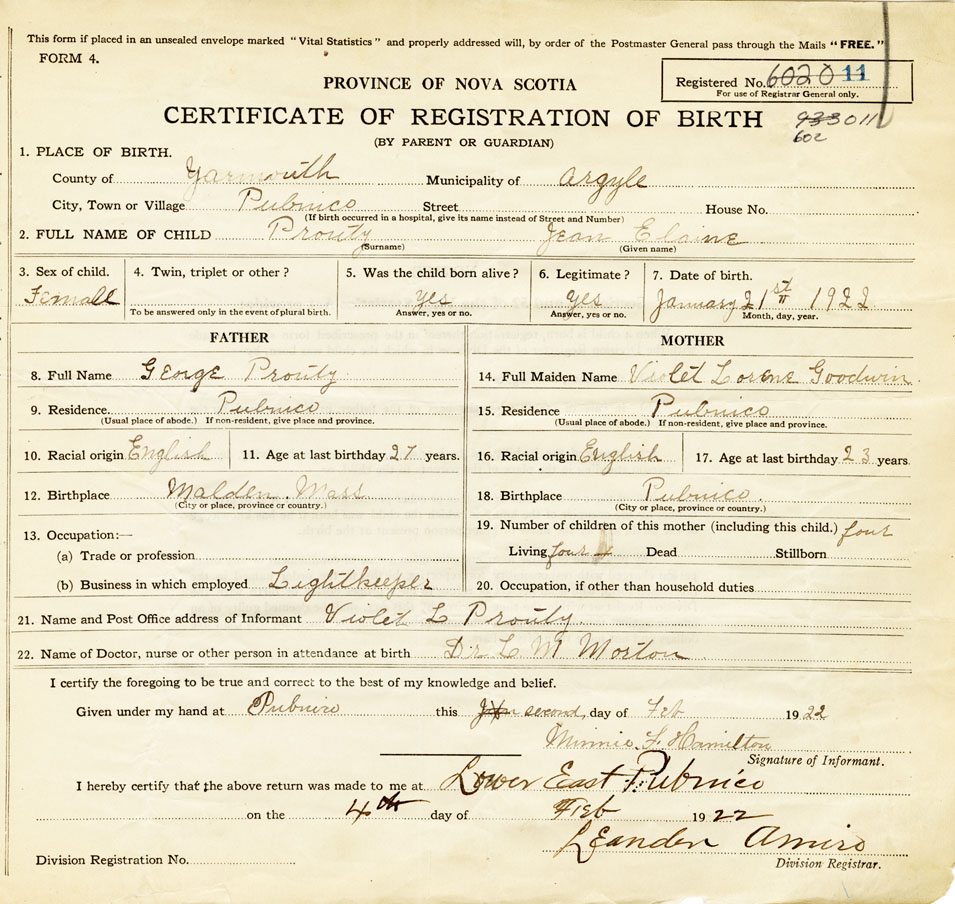 This form if placed in an unsealed envelope marked "Vital Statistics" and properly addressed will, by order of the Postmaster General pass through the Mails "FREE."
FORM 4.
PROVINCE OF NOVA SCOTIA
Registered No. 6020 11
For use of Registrar General only.
CERTIFICATE OF REGISTRATION OF BIRTH
933011
602
(BY PARENT OR GUARDIAN)
1. PLACE OF BIRTH.
County of Yarmouth Municipality of Argyle
City, Town or Village Pubnico Street House No.
(If birth occurred in a hospital, give its name instead of Street and Number)
2. FULL NAME OF CHILD Prouty Jean Elaine
(Surname) (Given name)
3. Sex of child. 4. Twin, triplet or other? 5. Was the child born alive? 6. Legitimate? 7. Date of birth.
Female yes yes January 21st 1922
To be answered only in the event of plural birth. Answer, yes or no. Answer, yes or no. Month, day, year.
FATHER MOTHER
8. Full Name George Prouty 14. Full Maiden Name Violet Lorene Goodwin
9. Residence. Pubnico 15. Residence Pubnico
(Usual place of abode.) If non-resident, give place and province. (Usual place of abode.) If non-resident, give place and province.
10. Racial origin English 11. Age at last birthday 27 years. 16. Racial origin English 17. Age at last birthday 23 years.
12. Birthplace Malden Mass 18. Birthplace Pubnico.
(City or place, province or country.) (City or place, province or country.)
13. Occupation:— 19. Number of children of this mother (including this child.) four
(a) Trade or profession Living four 4 Dead Stillborn
(b) Business in which employed Lightkeeper 20. Occupation, if other than household duties
21. Name and Post Office address of Informant Violet L Prouty.
22. Name of Doctor, nurse or other person in attendance at birth Dr L M Morton
I certify the foregoing to be true and correct to the best of my knowledge and belief.
Given under my hand at Pubnico this second day of Feb 1922
Minnie F Hamilton
Signature of Informant.
I hereby certify that the above return was made to me at Lower East Pubnico
on the 4th day of Feb 1922
Leander Amiro
Division Registrar.
Division Registration No.